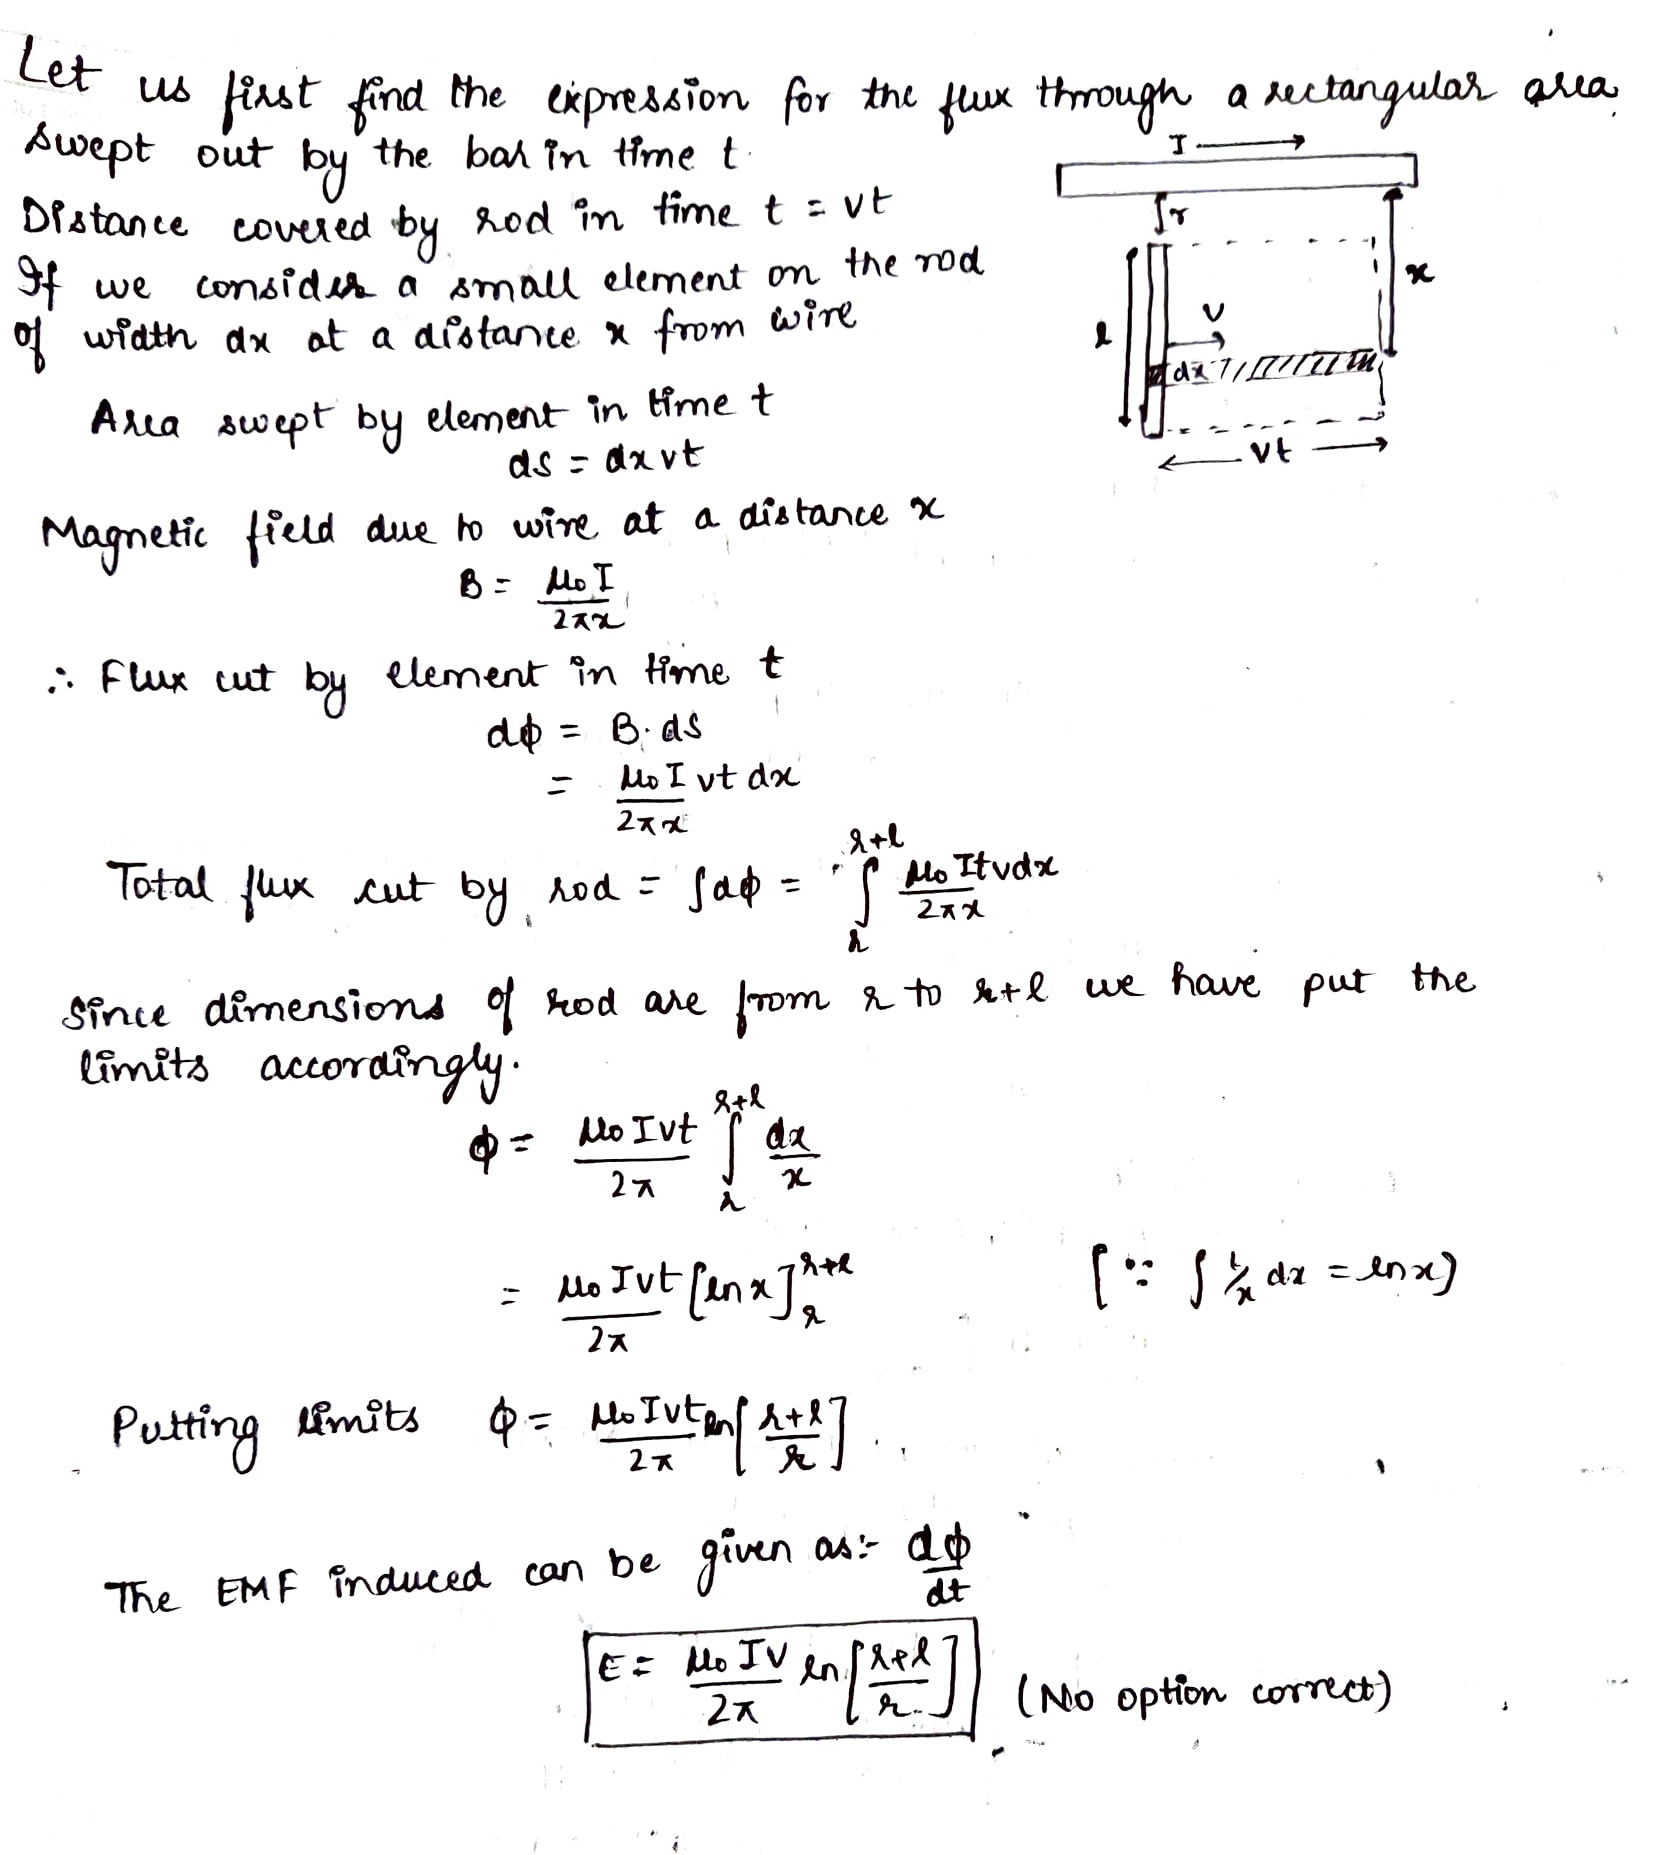 Let us first find the expression for the flux through a rectangular area
swept out by the bar in time t.
I
Distance covered by rod in time t = vt
r
If we consider a small element on the rod
x
of width dx at a distance x from wire
l
v
dx
Area swept by element in time t
vt
ds = dx vt
Magnetic field due to wire at a distance x
B = μ₀I / 2πx
∴ Flux cut by element in time t
dϕ = B.ds
= μ₀I vt dx / 2πx
Total flux cut by rod = ∫dϕ = ∫ᵣʳ⁺ˡ μ₀Itvdx / 2πx
Since dimensions of rod are from r to r+l we have put the
limits accordingly.
ϕ = μ₀Ivt / 2π ∫ᵣʳ⁺ˡ dx / x
= μ₀Ivt / 2π [ln x]ᵣʳ⁺ˡ [∵ ∫ 1/x dx = ln x)
Putting limits ϕ = μ₀Ivt / 2π ln[r+l / r]
The EMF induced can be given as:- dϕ / dt
E = μ₀IV / 2π ln[r+l / r] (No option correct)